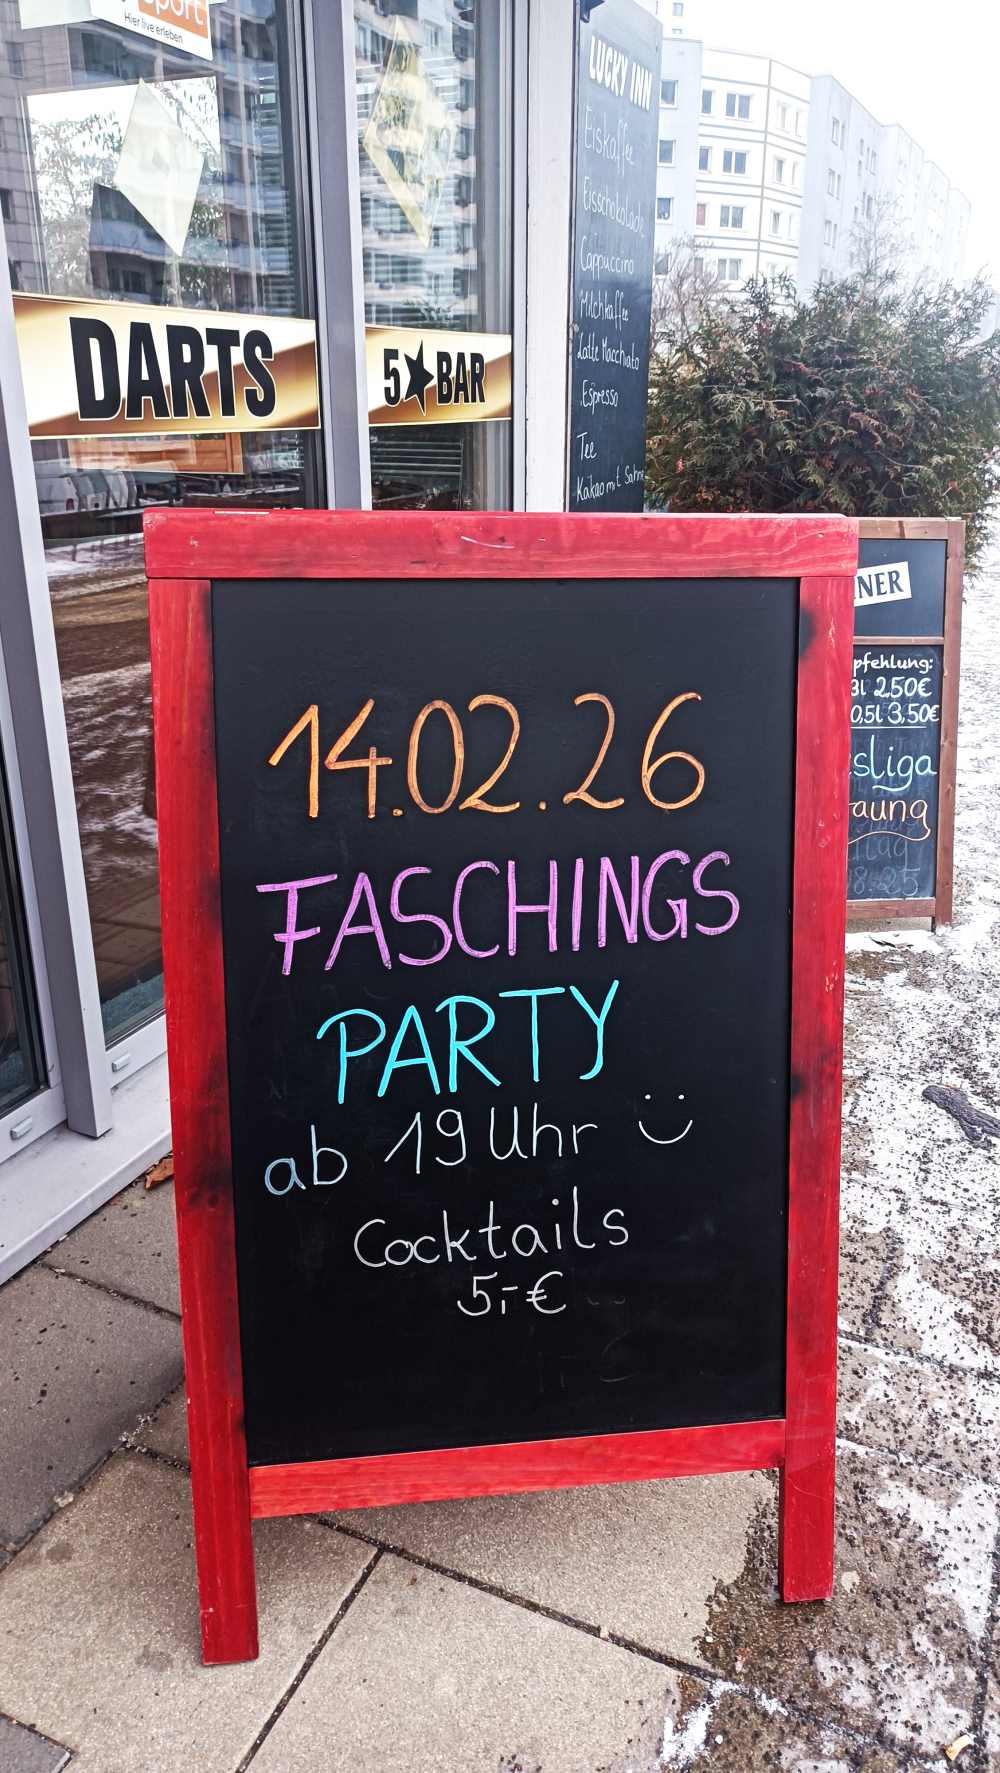 sport
Hier live erleben
DARTS
5★BAR
LUCKY INN
Eiskaffee
Eisschokolade
Cappuccino
Milchkaffee
Latte Macchiato
Espresso
Tee
Kakao mit Sahne
14.02.26
FASCHINGS
PARTY
ab 19 Uhr
Cocktails
5,-€
NER
pfehlung:
3l 2,50€
0,5l 3,50€
sliga
aung